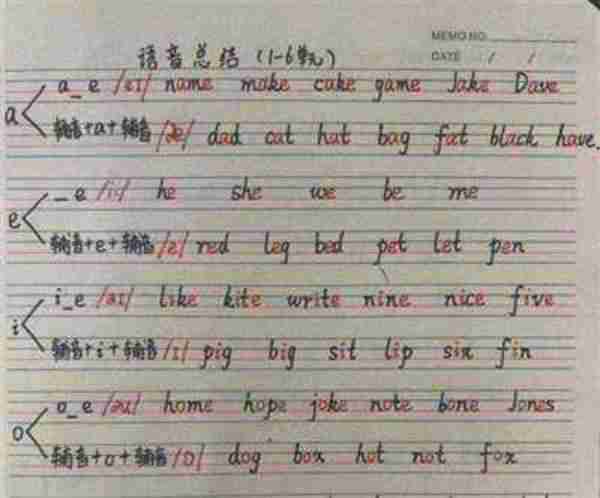 MEMO NO.
DATE / /
语音总结 (1-6单元)
a a_e /eɪ/ name make cake game Jake Dave
辅音+a+辅音 /æ/ dad cat hat bag fat black have
e _e /i:/ he she we be me
辅音+e+辅音 /e/ red leg bed pet let pen
i i_e /aɪ/ like kite write nine nice five
辅音+i+辅音 /ɪ/ pig big sit lip six fin
o o_e /əʊ/ home hope joke note bone Jones
辅音+o+辅音 /ɒ/ dog box hot not fox